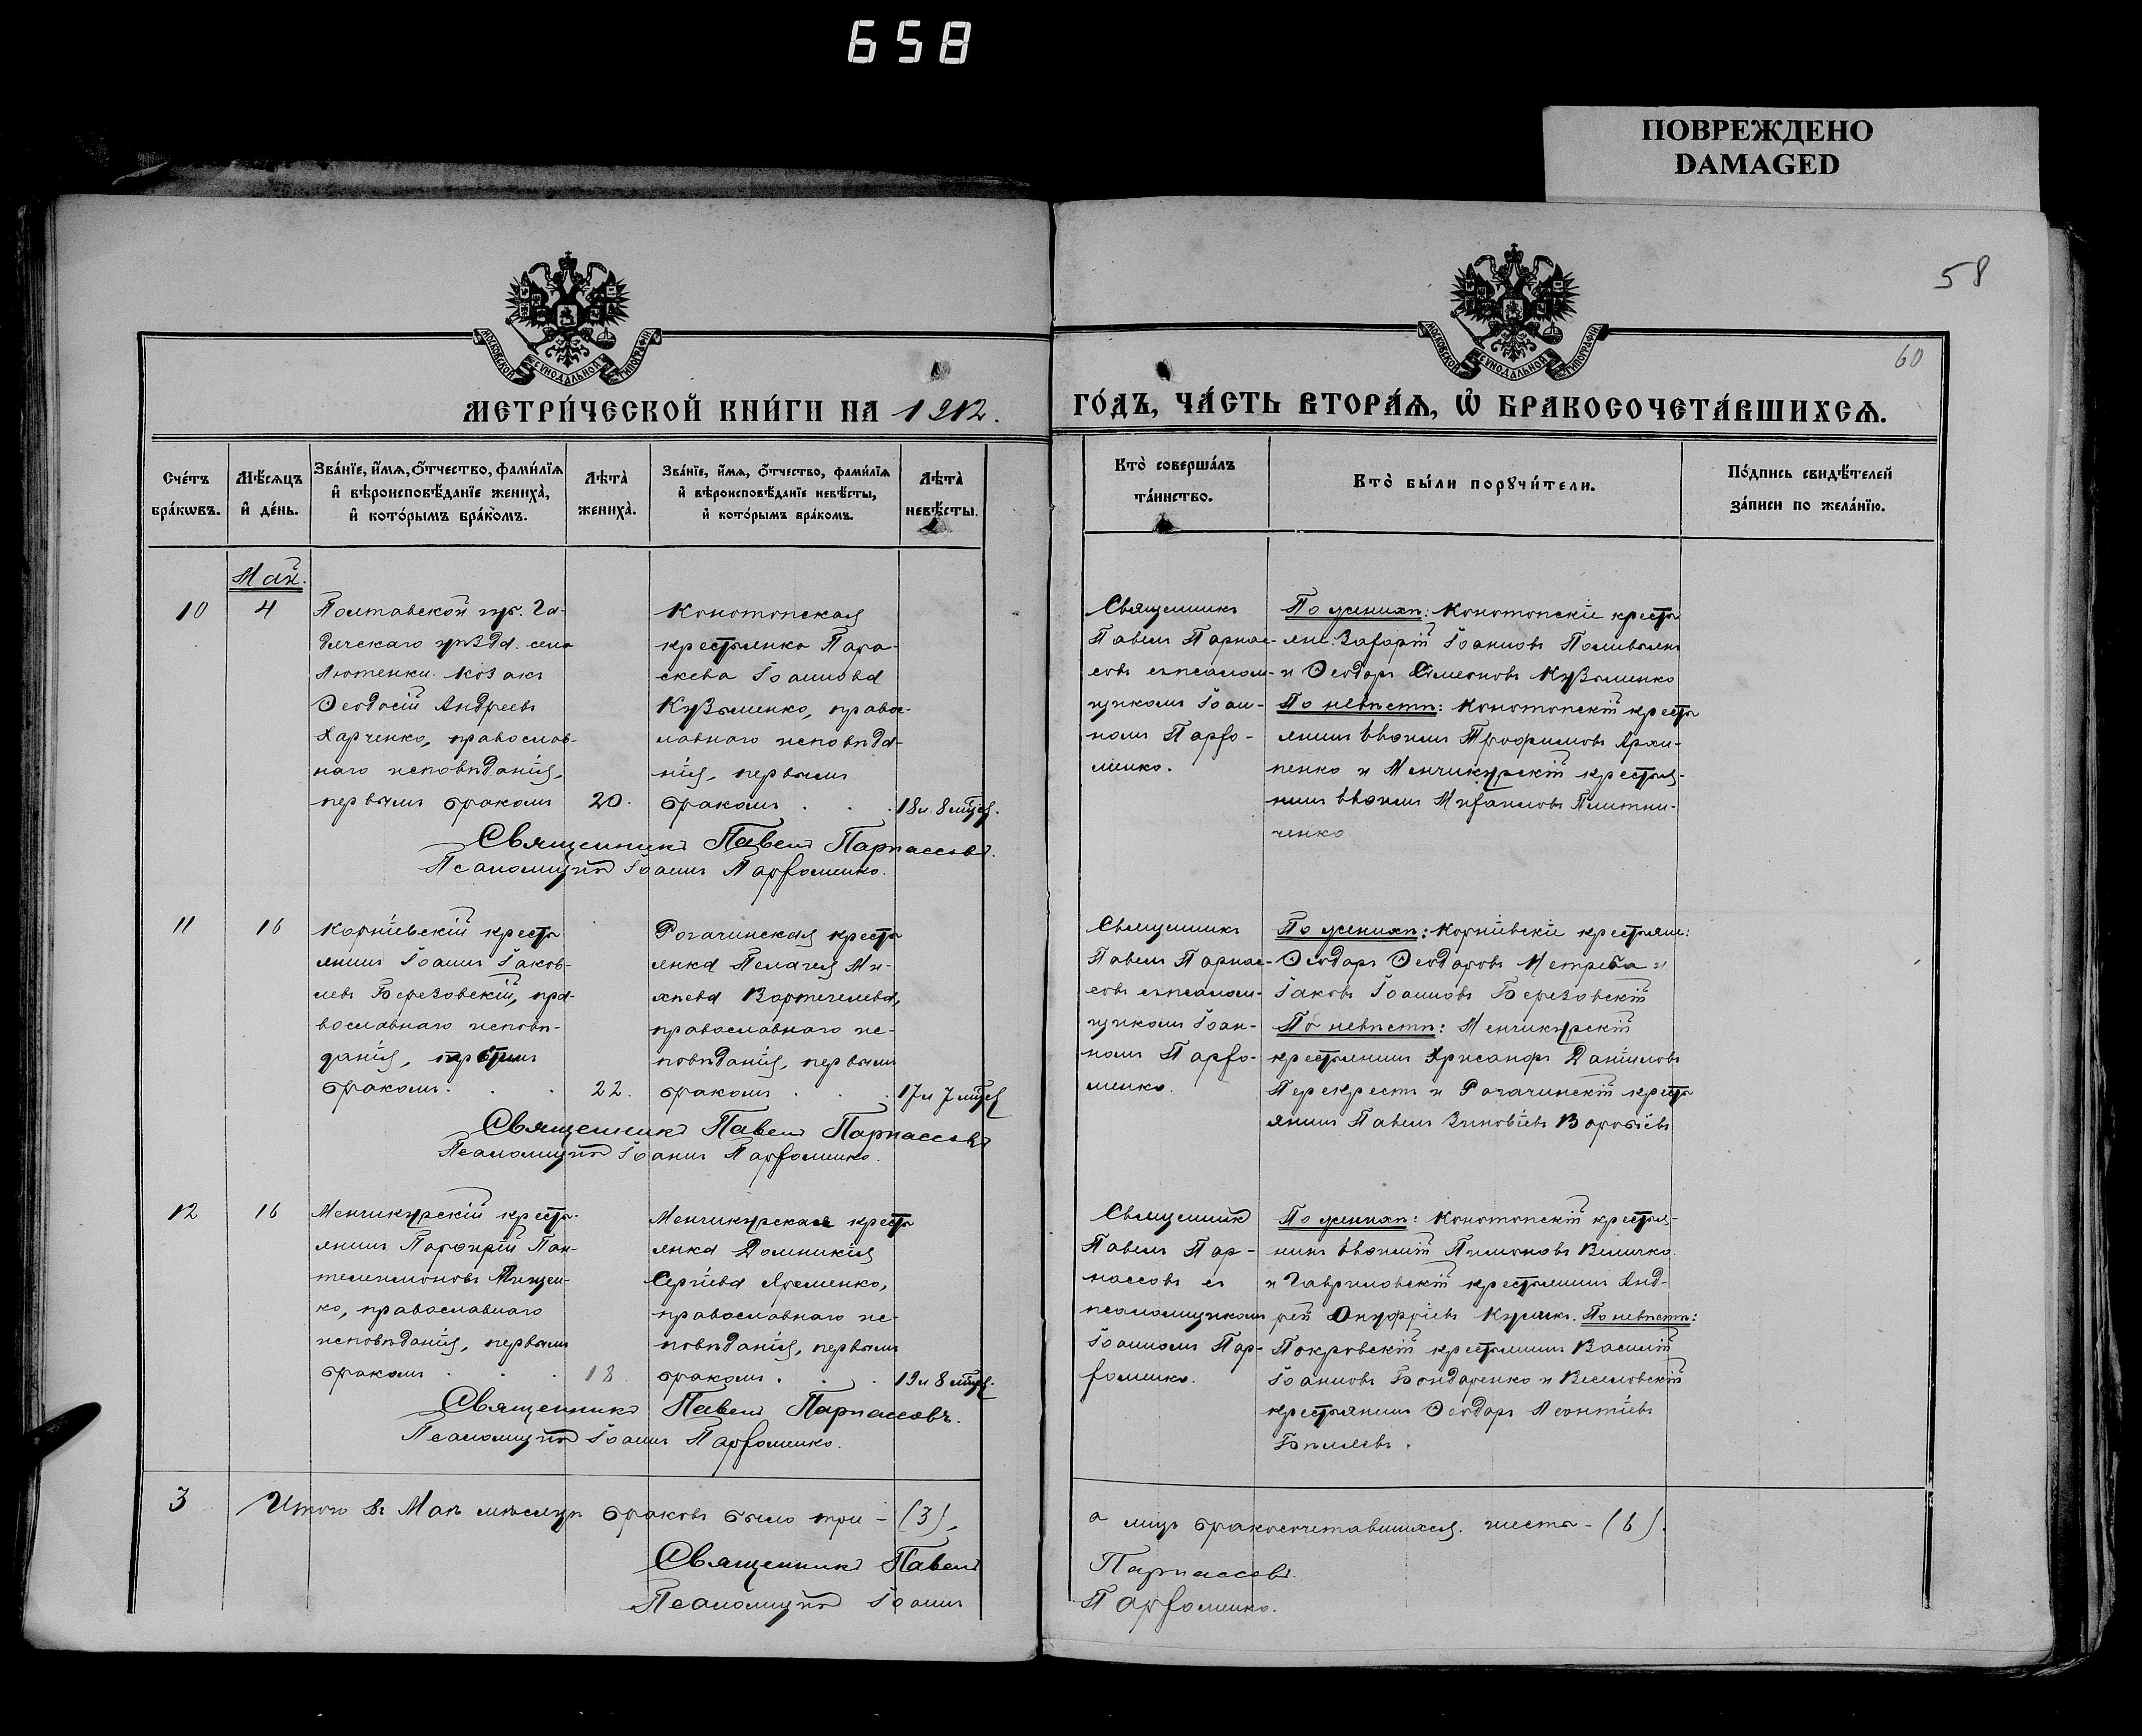 658
ПОВРЕЖДЕНО
DAMAGED
58
60
МОСКОВСКОЙ СѴНОДАЛЬНОЙ ТИПОГРАФІИ
МОСКОВСКОЙ СѴНОДАЛЬНОЙ ТИПОГРАФІИ
МЕТРИ́ЧЕСКОЙ КНИ́ГИ НА 1912.
ГО́ДЪ, ЧА́СТЬ ВТОРА́Ѧ, Ѡ҆ БРАКОСОЧЕТА́ВШИХСѦ.
Сче́тъ бра́кѡвъ.
Мѣ́сѧцъ и҆ де́нь.
Зва́нїе, и҆́мѧ, ѻ҆́тчество, фами́лїѧ и҆ вѣроисповѣ́данїе жениха̀, и҆ кото́рымъ бра́комъ.
Лѣта̀ жениха̀.
Зва́нїе, и҆́мѧ, ѻ҆́тчество, фами́лїѧ и҆ вѣроисповѣ́данїе невѣ́сты, и҆ кото́рымъ бра́комъ.
Лѣта̀ невѣ́сты.
Кто̀ соверша́лъ та́инство.
Кто̀ бы́ли порꙋчи́тели.
По́дпись свидѣ́телей за́писи по жела́нїю.
Май.
10
4
Полтавской губ. Га-
дячскаго уѣзда села
Лютенки козакъ
Ѳеодосій Андреевъ
Харченко, православ-
наго исповѣданія,
первымъ бракомъ
20.
Конотопская
крестьянка Пара-
скева Іоаннова
Кузьменко, правос-
лавнаго исповѣда-
нія, первымъ
бракомъ . . .
18 л. 8 мѣс.
Священникъ
Павелъ Парнас-
совъ съ псалом-
щикомъ Іоан-
номъ Парфо-
менко.
По женихѣ: Конотопскіе кресть-
яне: Захарій Іоанновъ
и Ѳеодоръ Симеоновъ Кузьменко
По невѣстѣ: Конотопскій кресть-
янинъ Трофимовъ Архи-
пенко и Менчикурскій крестья-
нинъ Михаиловъ Плотни-
ченко
Священникъ Павелъ Парнассовъ.
Псаломщикъ Іоаннъ Парфоменко.
11
16
Корніевскій кресть-
янинъ Іоаннъ Іаков-
левъ Березовскій, пра-
вославнаго исповѣ-
данія,
бракомъ . . .
22.
Рогачинская кресть-
янка Пелагея Ми-
хѣева
православнаго ис-
повѣданія, первымъ
бракомъ . . .
17 л 7 мѣс
Священникъ
Павелъ Парнас-
совъ съ псалом-
щикомъ Іоан-
номъ Парфо-
менко.
По женихѣ: Корніевскіе крестьяне:
Ѳеодоръ Ѳеодоровъ и
Іаковъ Іоанновъ Березовскій
По невѣстѣ: Менчикурскій
крестьянинъ Хрисанфъ Даніиловъ
Перекрестъ и Рогачинскій кресть-
янинъ Павелъ Зиновіевъ
Священникъ Павелъ Парнассовъ
Псаломщикъ Іоаннъ Парфоменко.
12
16
Менчикурскій кресть-
янинъ Парфирій Пан-
телеимоновъ
ко, православнаго
исповѣданія, первымъ
бракомъ . . .
18
Менчикурская кресть-
янка Домникія
Сергіева Яременко,
православнаго ис-
повѣданія, первымъ
бракомъ . . .
19 л 8 мѣс.
Священникъ
Павелъ Пар-
нассовъ съ
псаломщикомъ
Іоанномъ Пар-
фоменко.
По женихѣ: Конотопскій крестья-
нинъ Величко
и Гавриловскій крестьянинъ Анд-
рей Онуфріевъ По невѣстѣ:
Покровскій крестьянинъ Василій
Іоанновъ Бондаренко и Веселовскій
крестьянинъ Ѳеодоръ Леонтіевъ
Бѣляевъ.
Священникъ Павелъ Парнассовъ.
Псаломщикъ Іоаннъ Парфоменко.
3
Итого въ Маѣ мѣсяцѣ браковъ было три - (3),
а лицъ бракосочетавшихся шесть - (6).
Священникъ Павелъ Парнассовъ.
Псаломщикъ Іоаннъ Парфоменко.